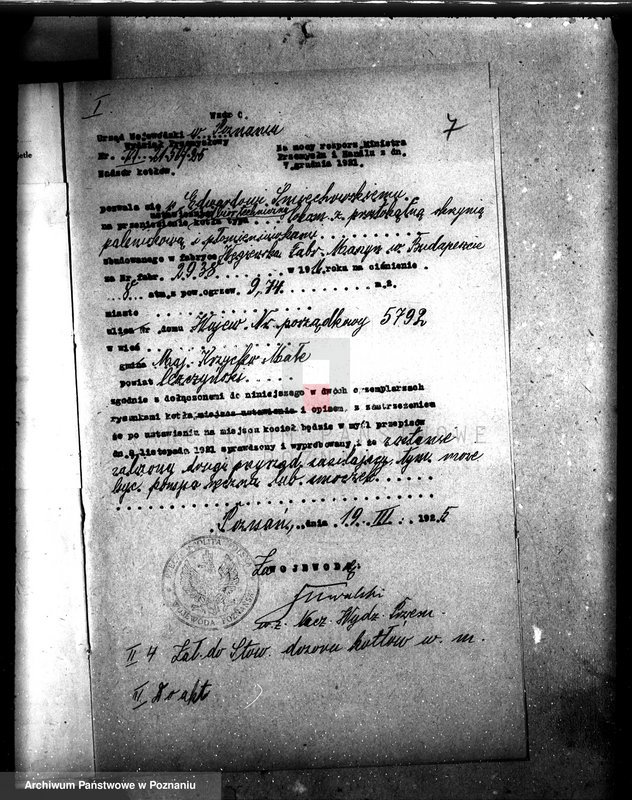 I
Wzór C.
7
Urząd Wojewódzki w Poznaniu
Wydział Przemysłowy
Nr. VI.
Na mocy rozporz. Ministra
Przemysłu i Handlu z dn.
grudnia 1921.
Nadzór kotłów.
pozwala się p. Edwardowi Snięchowskiemu
na przeniesienie kotła typu lokom. z przelotową skrzynią
paleniskową i płomieniówkami
zbudowanego w fabryce Węgierska Fabr. Maszyn w Budapeszcie
za Nr. fabr. 2938 w 19 roku na ciśnienie
8 atm. z pow. ogrzew. 9,74 m.2.
miasto
ulica nr domu Wojew. Nr. porządkowy 5792
w wsi
gmina Maj. Krzycko Małe
powiat Leszczyński
zgodnie z dołączonemi do niniejszego w dwóch egzemplarzach
rysunkami kotła, miejsca ustawienia i opisem, z zastrzeżeniem
że po ustawieniu na miejscu kocioł będzie w myśl przepisów
dn. listopada 1921 sprawdzony i wypróbowany i że zostanie
założony drugi przyrząd zasilający, tym może
być pompa ręczna lub smoczek.
Poznań, dnia 19. III. 192
Za WOJEWODA
w z. Nacz. Wydz. Przem.
II 4 Zał. do Stow. dozoru kotłów w. m.
III Do akt
Archiwum Państwowe w Poznaniu